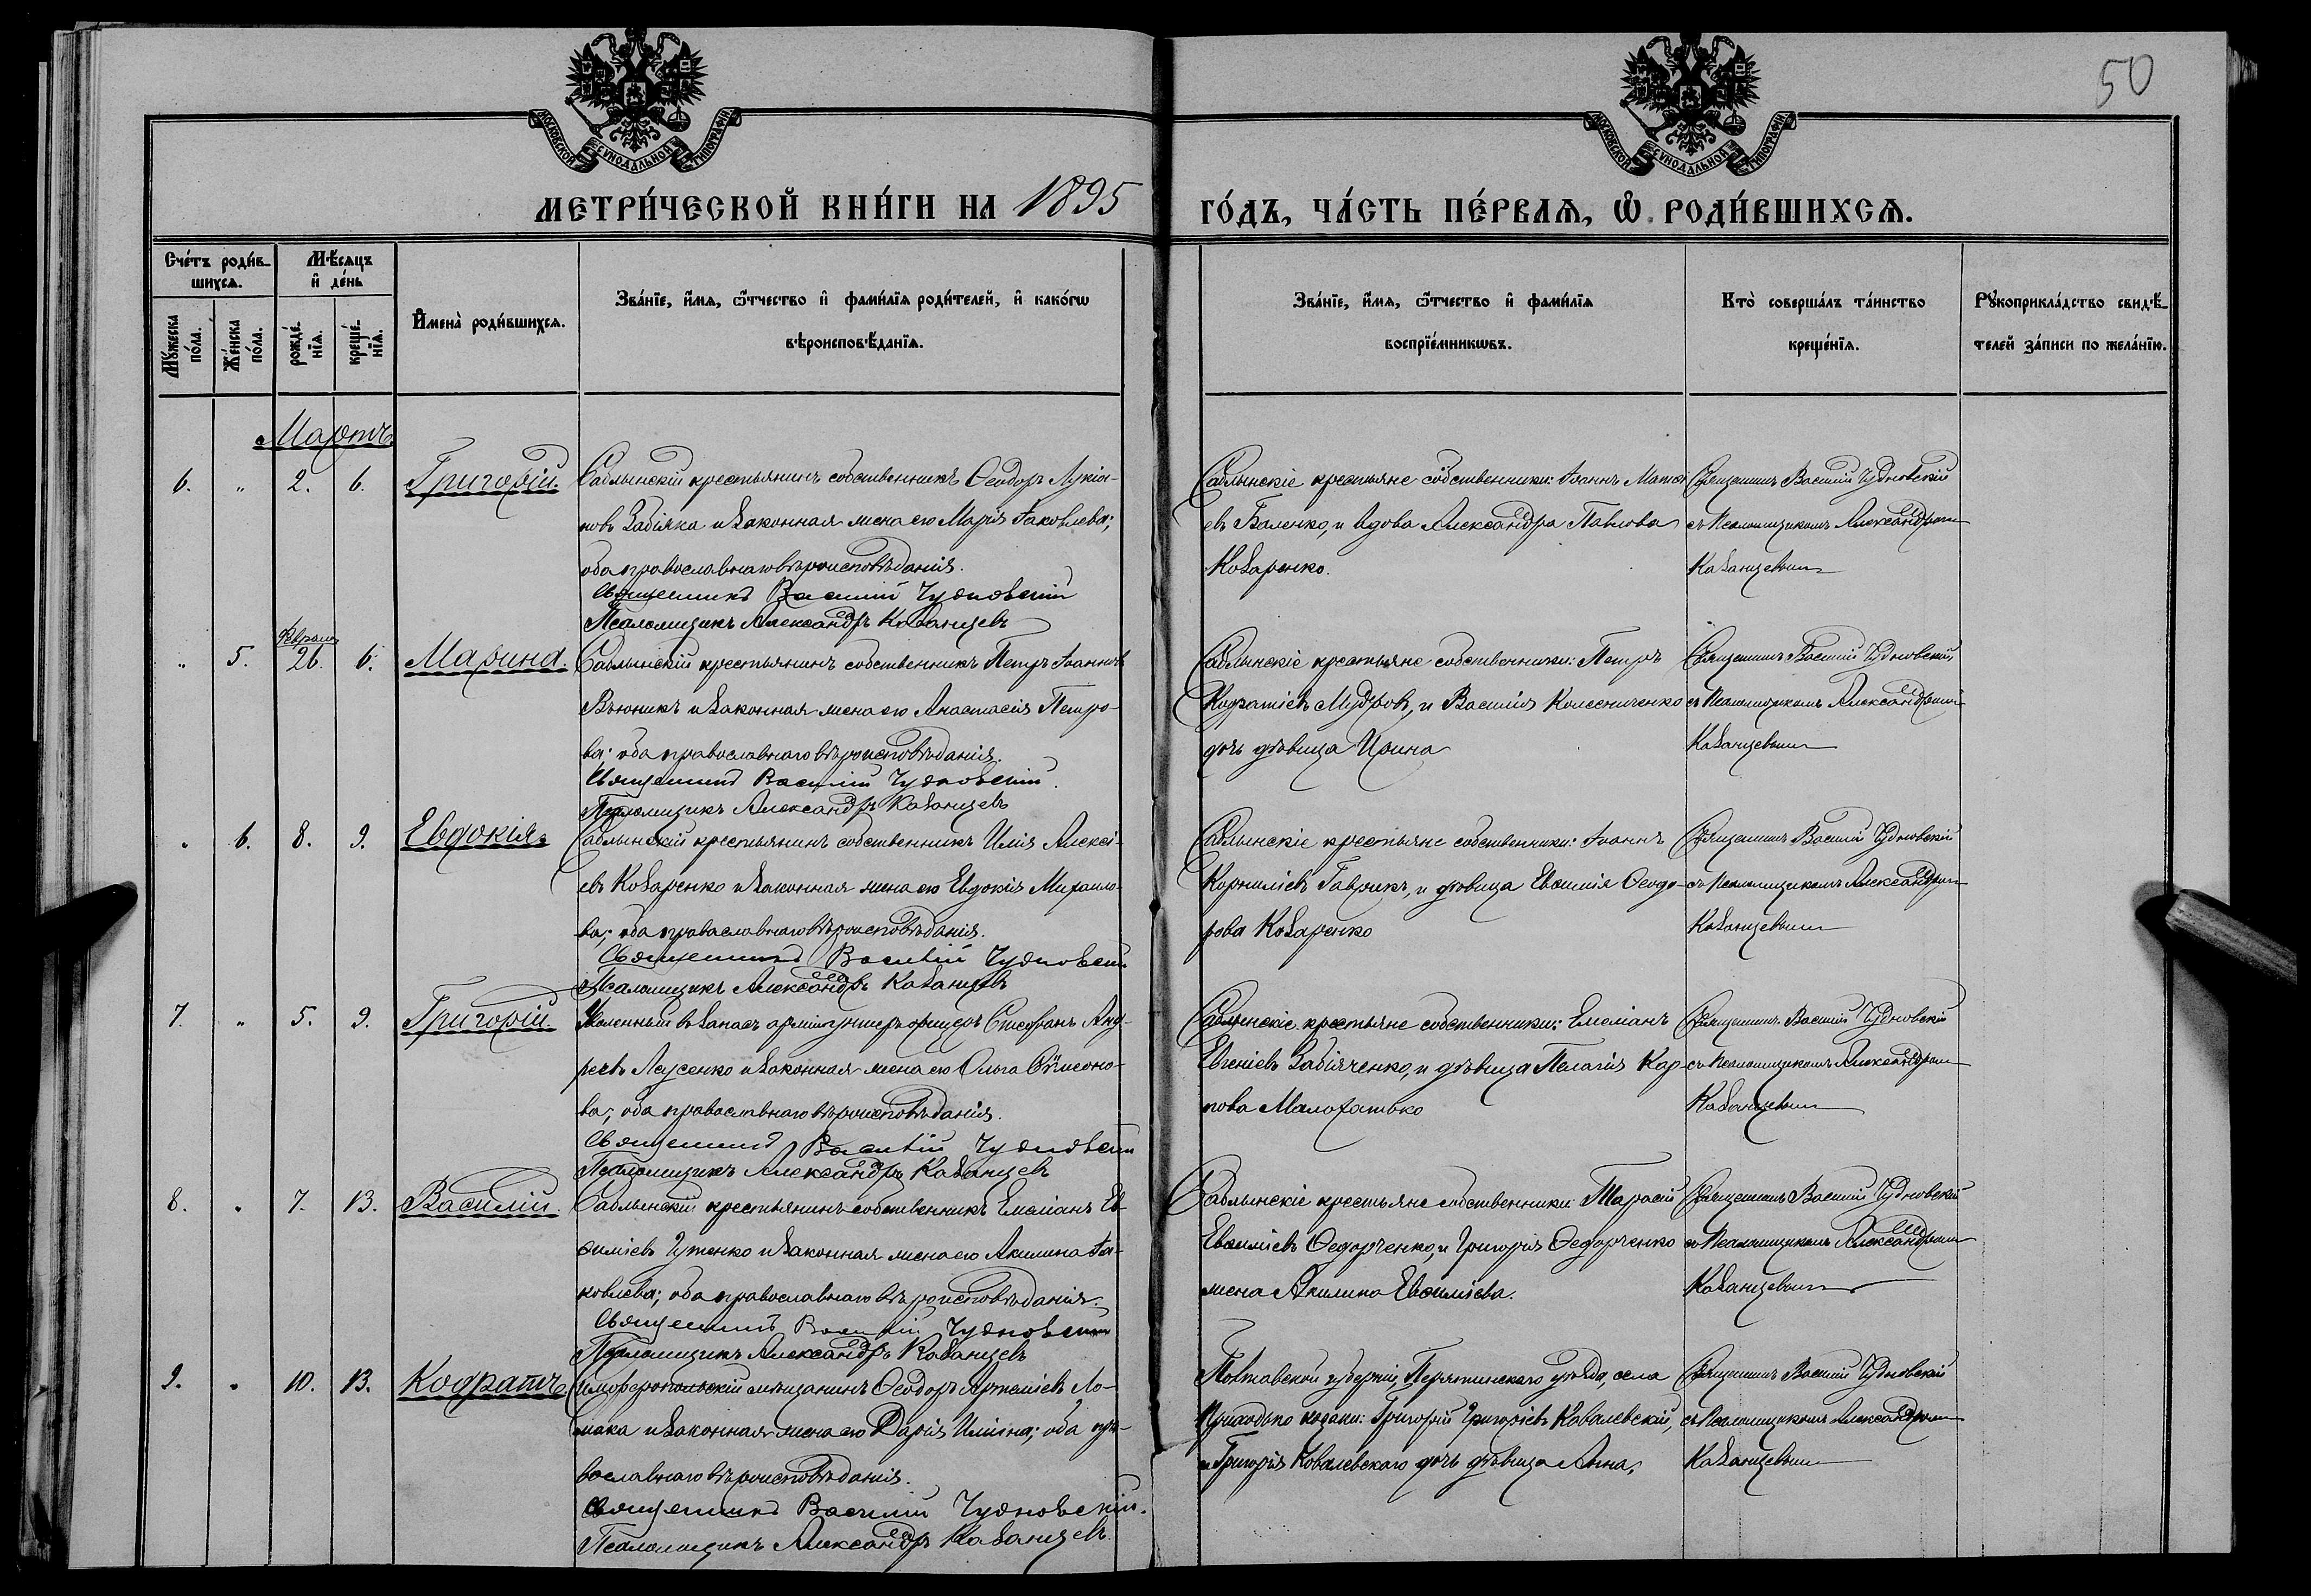 50
МОСКОВСКОЙ СѴНОДАЛЬНОЙ ТИПОГРАФІИ
МОСКОВСКОЙ СѴНОДАЛЬНОЙ ТИПОГРАФІИ
МЕТРИ́ЧЕСКОЙ КНИ́ГИ НА 1895 ГО́ДЪ, ЧА́СТЬ ПЕ́РВАѦ, Ѡ҆ РОДИ́ВШИХСѦ.
Сче́тъ роди́в-
шихсѧ.
Мꙋ́жеска
по́ла.
Же́нска
по́ла.
Мѣ́сѧцъ
и҆ де́нь
рожде́-
нїѧ.
креще́-
нїѧ.
И҆мена̀ роди́вшихсѧ.
Зва́нїе, и҆́мѧ, ѻ҆́тчество и҆ фами́лїѧ роди́телей, и҆ како́гѡ
вѣроисповѣ́данїѧ.
Зва́нїе, и҆́мѧ, ѻ҆́тчество и҆ фами́лїѧ
воспрїе́мникѡвъ.
Кто̀ соверша́лъ та́инство
креще́нїѧ.
Рꙋкоприкла́дство свидѣ́-
телей за́писи по жела́нїю.
Мартъ
6. " 2. 6. Григорій.
Саблынскій крестьянинъ собственникъ Ѳеодоръ Лукіа-
новъ Забіяка и законная жена его Марія Іаковлева;
оба православнаго вѣроисповѣданія.
Священникъ Василій Чудновскій
Псаломщикъ Александръ Казанцевъ
Саблынскіе крестьяне собственники: Іоаннъ Матѳі
евъ Баленко, и вдова Александра Павлова
Козаренко.
Священникъ Василій Чудновскій
съ Псаломщикомъ Александромъ
Казанцевымъ
" 5. Февраля 26. 6. Марина.
Саблынскій крестьянинъ собственникъ Петръ Іоанновъ
Вьюникъ и законная жена его Анастасія Петро-
ва; оба православнаго вѣроисповѣданія.
Священникъ Василій Чудновскій.
Псаломщикъ Александръ Казанцевъ
Саблынскіе крестьяне собственники: Петръ
Кодратіевъ Мудровъ, и Василія Колесниченко
дочь дѣвица Ирина
Священникъ Василій Чудновскій
съ Псаломщикомъ Александромъ
Казанцевымъ
" 6. 8. 9. Евдокія.
Саблынскій крестьянинъ собственникъ Илія Алексі-
евъ Козаренко и законная жена его Евдокія Михаило-
ва; оба православнаго вѣроисповѣданія.
Священникъ Василій Чудновскій
Псаломщикъ Александръ Казанцевъ
Саблынскіе крестьяне собственники: Іоаннъ
Корниліевъ Гаврикъ, и дѣвица Евѳимія Ѳеодо-
рова Козаренко
Священникъ Василій Чудновскій
съ Псаломщикомъ Александромъ
Казанцевымъ
7. " 5. 9. Григорій.
Уволенный въ запасъ арміи унтеръ офицеръ Стефанъ Анд-
реевъ Лысенко и законная жена его Ольга Сѵмеоно-
ва; оба православнаго вѣроисповѣданія.
Священникъ Василій Чудновскій
Псаломщикъ Александръ Казанцевъ
Саблынскіе крестьяне собственники: Емеліанъ
Евгеніевъ Забіяченко, и дѣвица Пелагія Кар-
пова Малохатько
Священникъ Василій Чудновскій
съ Псаломщикомъ Александромъ
Казанцевымъ
8. " 7. 13. Василій.
Саблынскій крестьянинъ собственникъ Емеліанъ Ев-
ѳиміевъ Гутенко и законная жена его Акилина Іа-
ковлева; оба православнаго вѣроисповѣданія.
Священникъ Василій Чудновскій
Псаломщикъ Александръ Казанцевъ
Саблынскіе крестьяне собственники: Тарасій
Евѳиміевъ Ѳедорченко, и Григорія Ѳедорченко
жена Акилина Евѳиміева.
Священникъ Василій Чудновскій
съ Псаломщикомъ Александромъ
Казанцевымъ
9. " 10. 13. Кодратъ
Симферопольскій мѣщанинъ Ѳеодоръ Артеміевъ Ло-
мака и законная жена его Дарія Иліина; оба пра-
вославнаго вѣроисповѣданія.
Священникъ Василій Чудновскій.
Псаломщикъ Александръ Казанцевъ.
Полтавской губерніи, Пирятинскаго уѣзда, села
Приходько козаки: Григорій Григоріевъ Ковалевскій,
и Григорія Ковалевскаго дочь дѣвица Анна.
Священникъ Василій Чудновскій
съ Псаломщикомъ Александромъ
Казанцевымъ